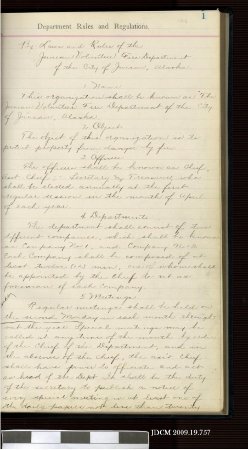 1
Department Rules and Regulations.
The Laws and Rules of the
Juneau Volunteer Fire Department
of the City of Juneau, Alaska.
1 Name
This organization shall be known as "The
Juneau Volunteer Fire Department of the City
of Juneau, Alaska
2 Object
The object of this organization is to
protect property from danger by fire
3 Officers
The officers shall be known as Chief,
Asst Chief, Secretary & Treasurer, who
shall be elected annually at the first
regular session in the month of April
of each year.
4 Departments
The department shall consist of two
different companies, which shall be known
as Company No 1, and Company No 2.
Each Company shall be composed of at
least twelve men, one of whom shall
be appointed by the Chief to act as
foreman of each Company.
5 Meetings
Regular meetings shall be held on
the second Monday in each month
Special meetings may be
called at any time of the month by order
of the Chief of the Department, and in
the absence of the chief, the asst Chief
shall have power to officiate and act
as head of the Dept. It shall be the duty
of the secretary to publish a notice of
every special meeting in at least one of
the daily papers not less than twenty
JDCM 2009.19.757